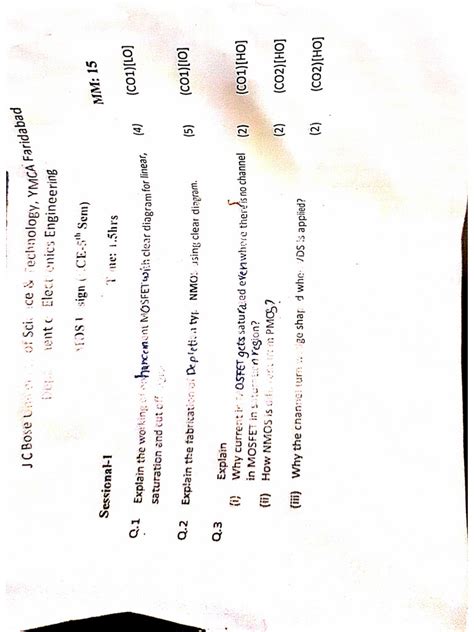 J C Bose of & Technology, YMCA Faridabad
Electronics Engineering
sign ( CE-5th Sem)
Sessional-I
Time: 1.5hrs
MM: 15
Q.1 Explain the working of enhancement MOSFET with clear diagram for linear, (4) (CO1)[LO]
saturation and cut off
Q.2 Explain the fabrication of Depletion type NMOS using clear diagram. (5) (CO1)[IO]
Q.3 Explain
(i) Why current in MOSFET gets saturated even where there is no channel (2) (CO1)[HO]
in MOSFET in saturation region?
(ii) How NMOS is different from PMOS? (2) (CO2)[HO]
(iii) Why the channel turns wedge shaped when VDS is applied? (2) (CO2)[HO]